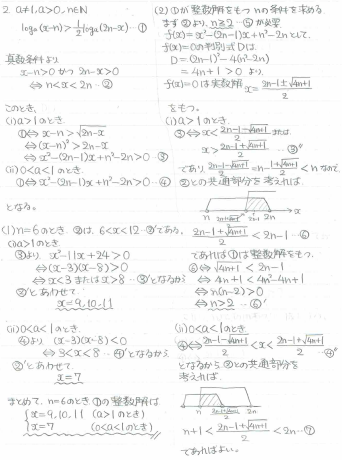 2. a≠1, a>0, n∈N
logₐ(x-n)>1/2 logₐ(2n-x) …①
真数条件より
x-n>0 かつ 2n-x>0
⇔ n<x<2n …②
このとき,
(i) a>1のとき
①⇔ x-n>√(2n-x)
⇔ (x-n)²>2n-x
⇔ x²-(2n-1)x+n²-2n>0 …③
(ii) 0<a<1のとき
①⇔ x²-(2n-1)x+n²-2n>0 …④
となる。
(1) n=6のとき, ②は, 6<x<12 …②'である。
(i) a>1のとき
③より, x²-11x+24>0
⇔ (x-3)(x-8)>0
⇔ x<3 または x>8 …③'となるから
②'とあわせて,
x=9,10,11
(ii) 0<a<1のとき
④より (x-3)(x-8)<0
⇔ 3<x<8 …④'となるから
②'とあわせて
x=7
まとめて, n=6のとき①の整数解は
x=9,10,11 (a>1のとき)
x=7 (0<a<1のとき)
(2) ①が整数解をもつnの条件を求める
まず②より, n≧2 …⑤が必要
f(x)=x²-(2n-1)x+n²-2nとして,
f(x)=0の判別式Dは,
D=(2n-1)²-4(n²-2n)
=4n+1>0 より,
f(x)=0は実数解 x=(2n-1±√(4n+1))/2
をもつ。
(i) a>1のとき
③⇔ x<(2n-1-√(4n+1))/2 または
x>(2n-1+√(4n+1))/2 …③''
であり, (2n-1-√(4n+1))/2=n-(1+√(4n+1))/2<n なので
②との共通部分を考えれば
n (2n-1+√(4n+1))/2 2n-1 2n x
(2n-1+√(4n+1))/2<2n-1 …⑥
であれば①は整数解をもつ。
⑥⇔ √(4n+1)<2n-1
⇔ 4n+1<4n²-4n+1
⇔ n(n-2)>0
⇔ n>2 …⑥'
(ii) 0<a<1のとき
④⇔ (2n-1-√(4n+1))/2<x<(2n-1+√(4n+1))/2 …④''
となるから②との共通部分を
考えれば,
n (2n-1+√(4n+1))/2 2n
n+1<(2n-1+√(4n+1))/2<2n …⑦
であればよい。